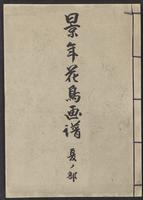 景年花鳥画譜
夏ノ部